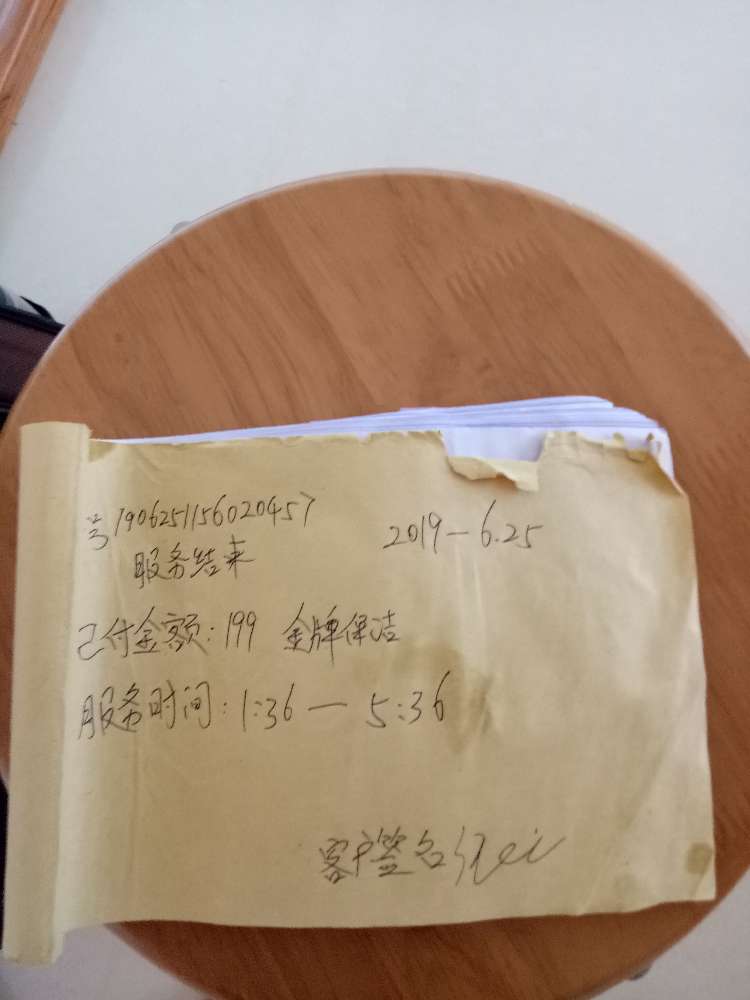 号1906251156020457
2019-6.25
服务结束
已付金额：199 金牌保洁
服务时间：1:36 — 5:36
客户签名